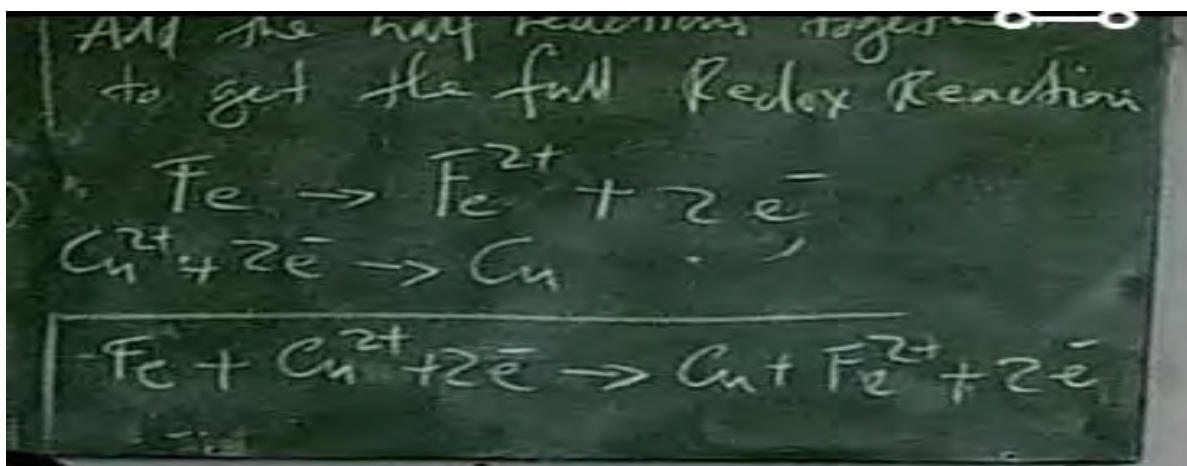 Add the half reactions together
to get the full Redox Reaction
Fe → Fe²⁺ + 2e⁻
Cu²⁺ + 2e⁻ → Cu
Fe + Cu²⁺ + 2e⁻ → Cu + Fe²⁺ + 2e⁻